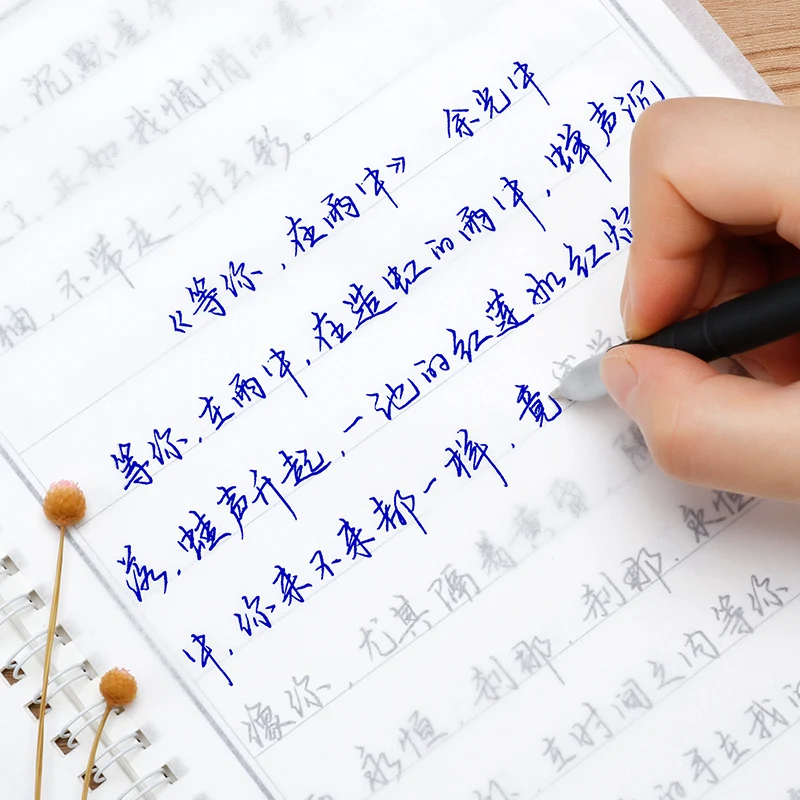 沉默是
正如我悄悄的来
袖，不带走一片云彩。
《等你，在雨中》 余光中
等你，在雨中，在造虹的雨中，蝉声沉
落，蛙声升起，一池的红莲如红焰
中，你来不来都一样，竟感觉
像你，尤其隔着黄昏，隔
永恒，刹那，刹那，永恒
在时间之内等你
的手在我的